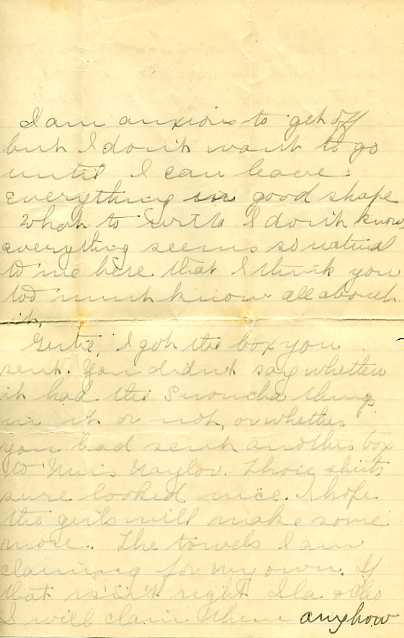 I am anxious to get off
but I don't want to go
until I can leave
everything in good shape
What to write I don't know
everything seems so natural
to me here that I think you
too must know all about
it.
Gertie, I got the box you
sent. You didn't say whether
it had the things
in it or not, or whether
you had sent another box
to Miss Naylor. Those shirts
sure looked nice. I hope
the girls will make some
more. The towels I am
claiming for my own. If
that isn't right
I will claim them anyhow